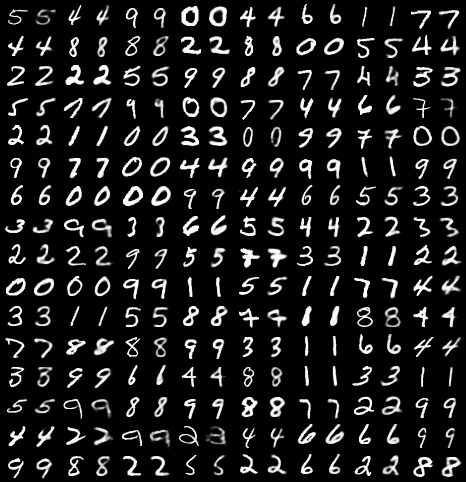 5 5 4 4 9 9 0 0 4 4 6 6 1 1 7 7
4 4 8 8 8 8 2 2 8 8 0 0 5 5 4 4
2 2 2 2 5 5 9 9 8 8 7 7 4 4 3 3
5 5 7 7 9 9 0 0 7 7 4 4 6 6 7 7
2 2 1 1 0 0 3 3 0 0 9 9 7 7 0 0
9 9 7 7 0 0 4 4 9 9 9 9 1 1 9 9
6 6 0 0 0 0 9 9 4 4 6 6 5 5 3 3
3 3 9 9 3 3 6 6 5 5 4 4 2 2 3 3
2 2 2 2 9 9 5 5 7 7 3 3 1 1 2 2
0 0 0 0 9 9 1 1 5 5 1 1 7 7 4 4
3 3 1 1 5 5 8 8 7 9 1 1 8 8 4 4
7 7 8 8 8 8 9 9 3 3 1 1 6 6 4 4
3 3 9 9 6 6 4 4 8 8 1 1 3 3 1 1
5 5 9 9 8 8 9 9 8 8 7 7 2 2 9 9
4 4 2 2 9 9 2 3 4 4 6 6 6 6 9 9
9 9 8 8 2 2 5 5 2 2 6 6 2 2 8 8